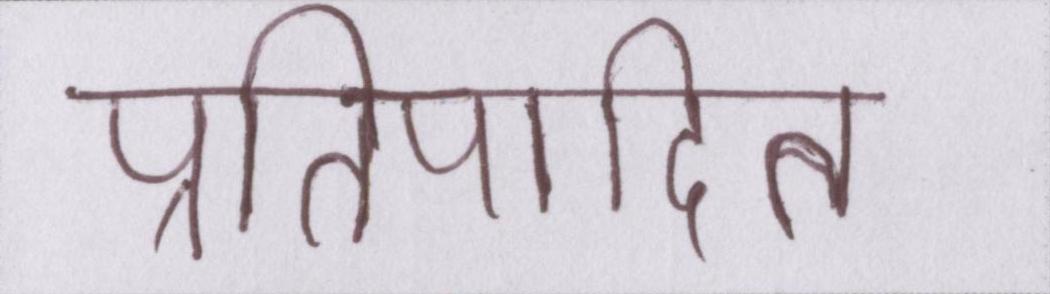 प्रतिपादित